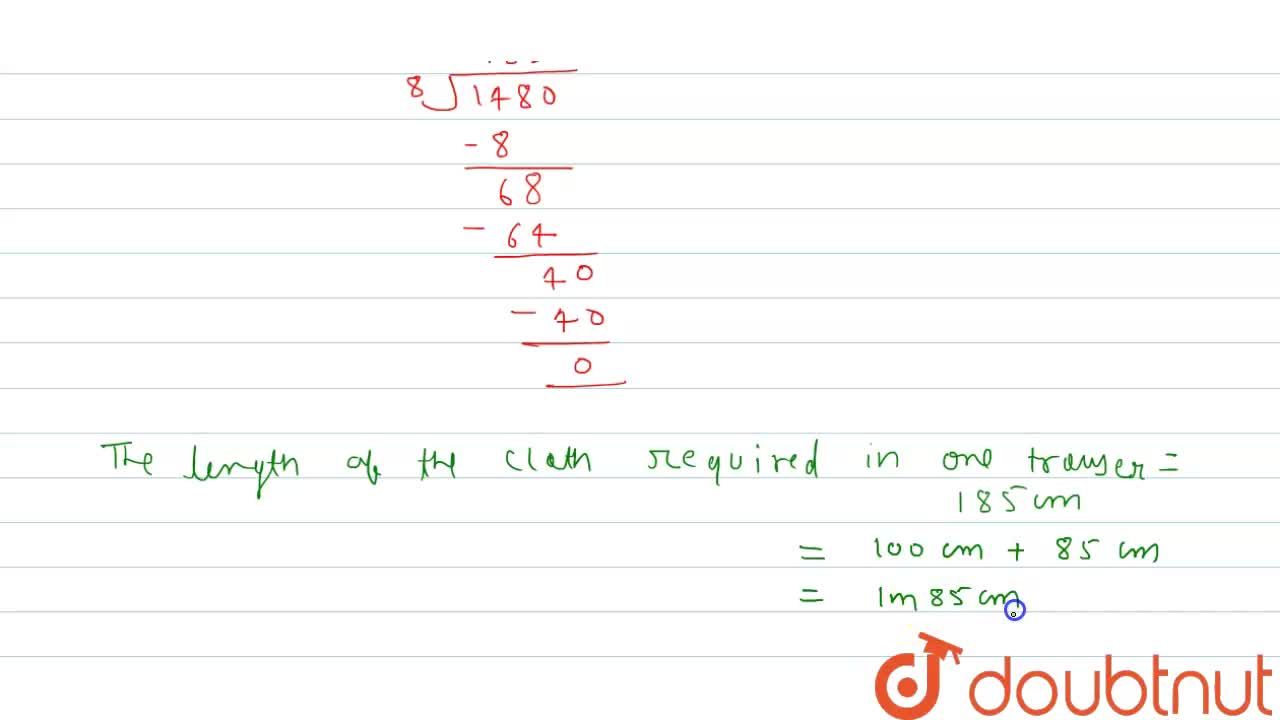 8 1480
- 8
68
- 64
40
- 40
0
The length of the cloth required in one trouser =
185 cm
= 100 cm + 85 cm
= 1m 85 cm
doubtnut